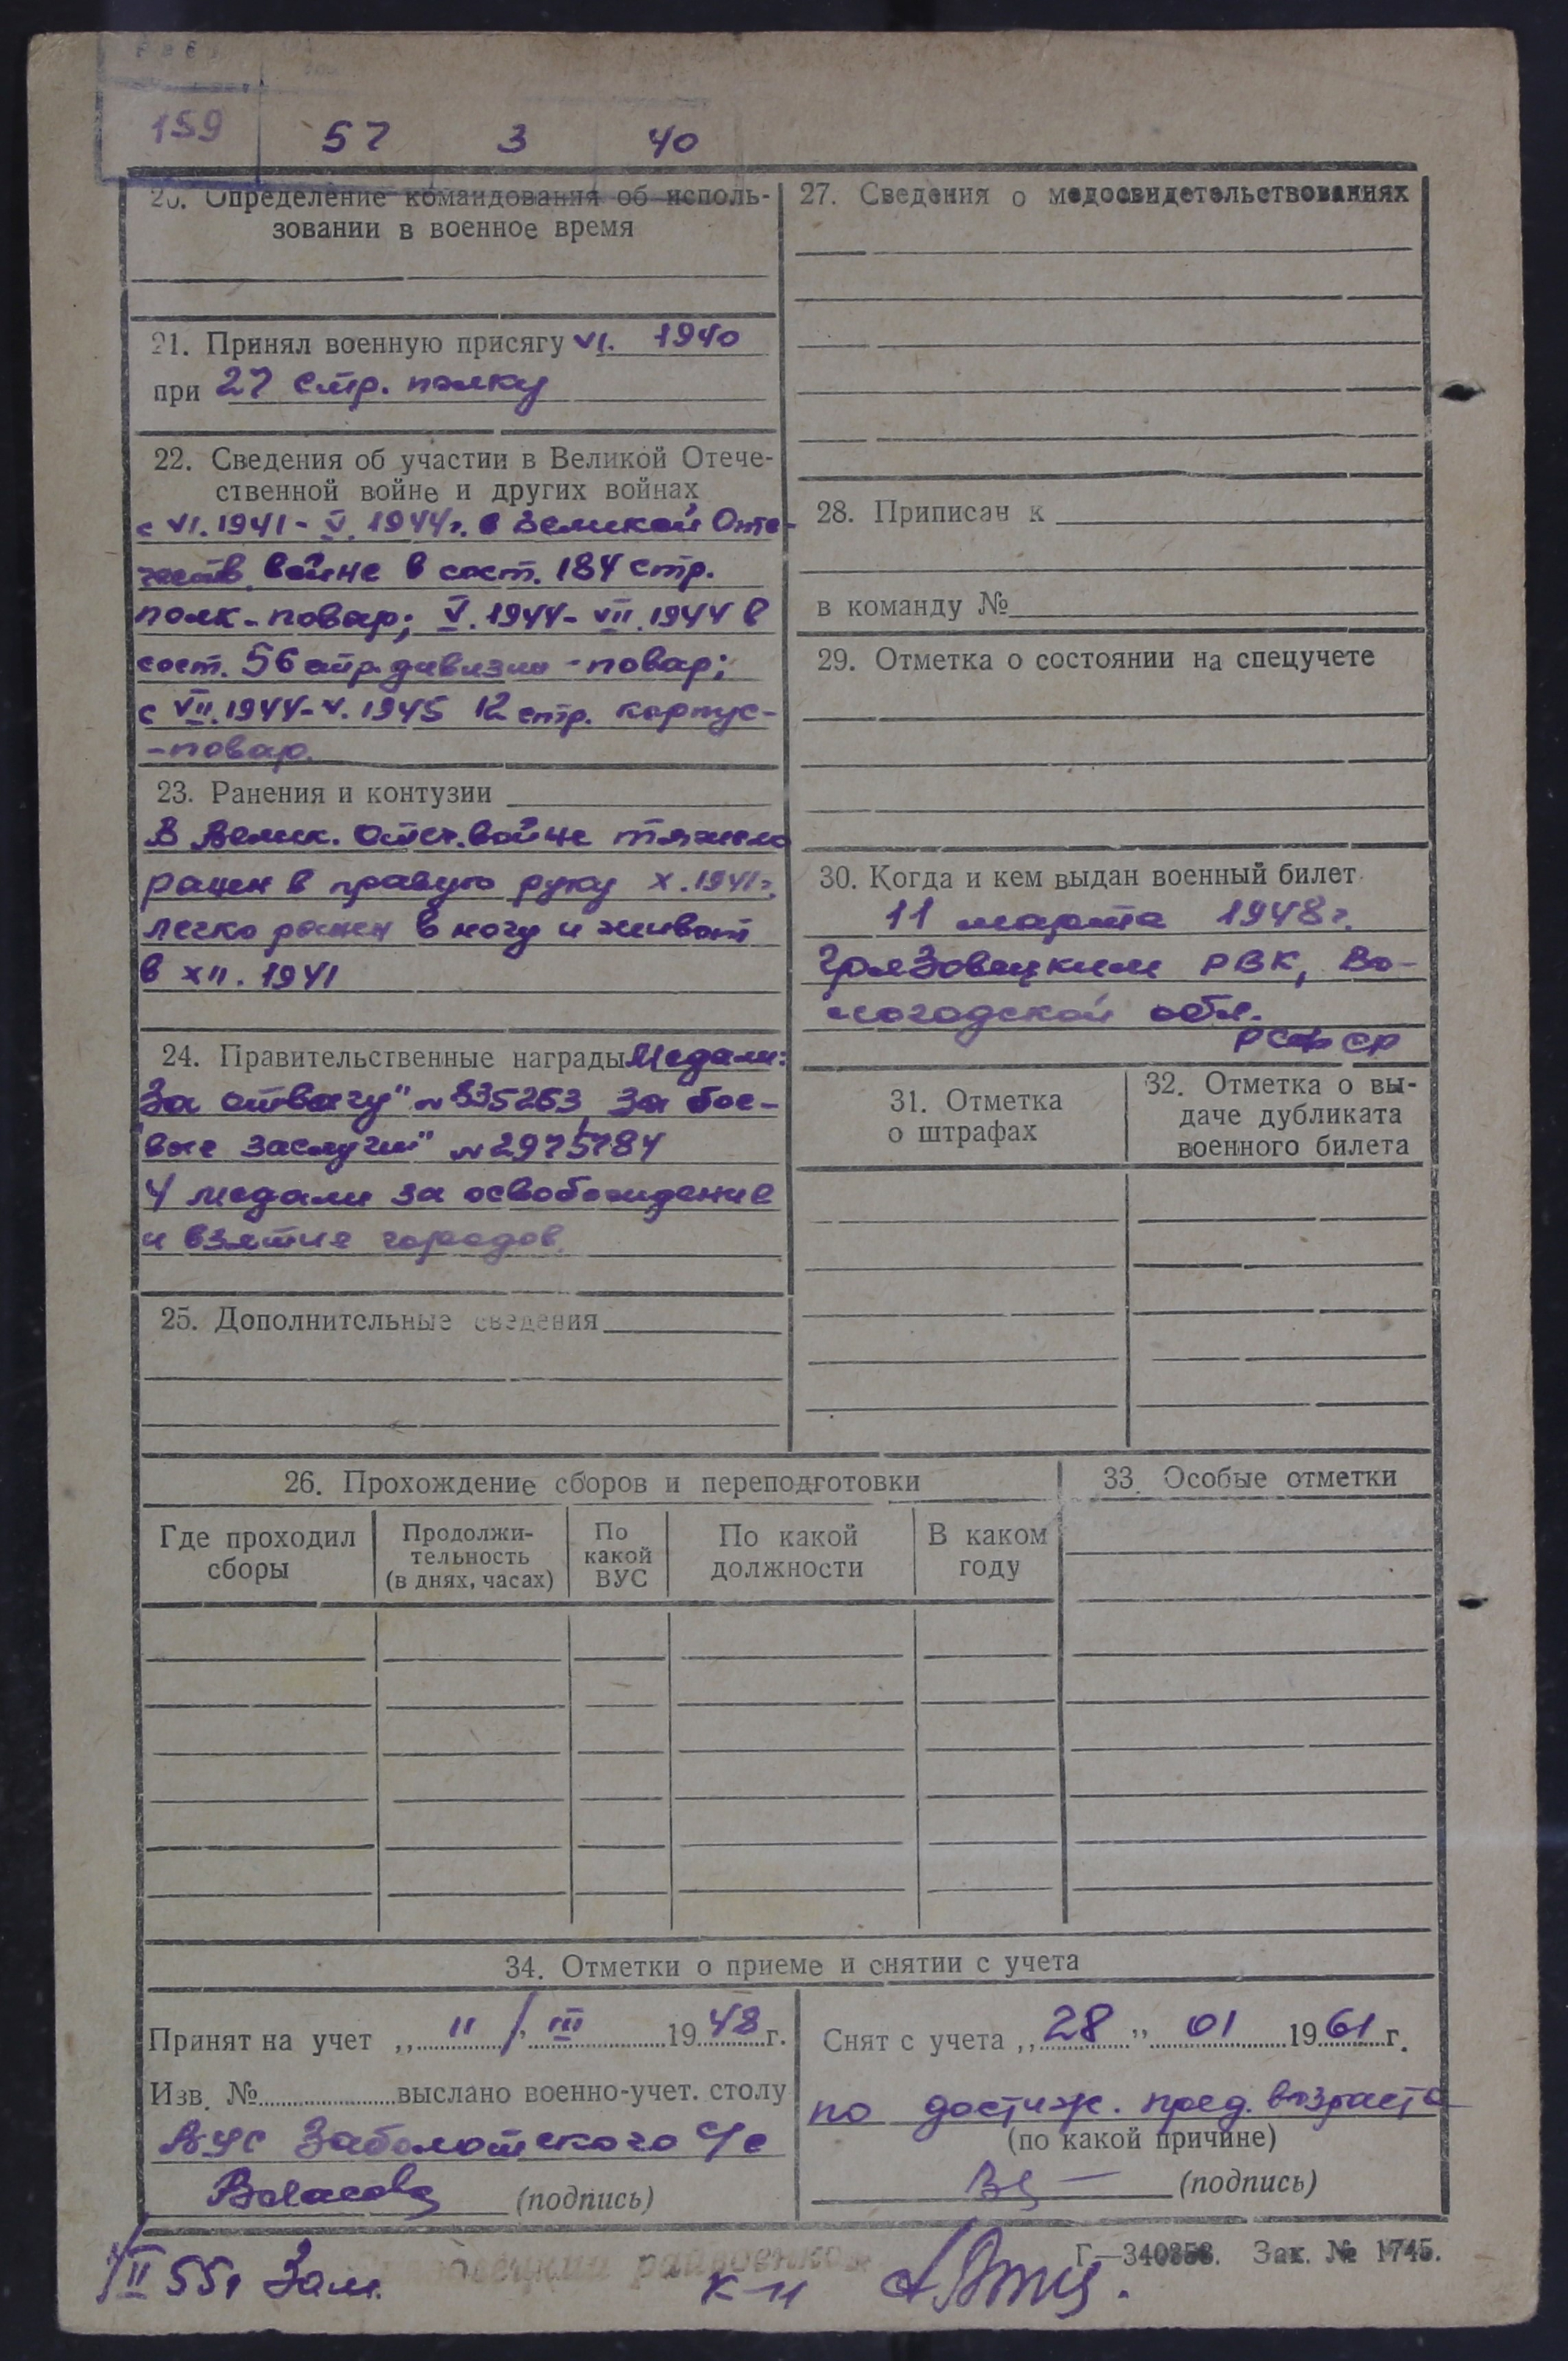 159 57 3 40
20. Определение командования об исполь-
зовании в военное время
21. Принял военную присягу VI. 1940
при 27 стр. полку
22. Сведения об участии в Великой Отече-
ственной войне и других войнах
с VI.1941 - V. 1944г. в Великой Оте-
честв. войне в сост. 184 стр.
полк - повар; V. 1944 - VII. 1944 в
сост. 56 стр. дивизии - повар;
с VII. 1944 - V. 1945 12 стр. корпус-
- повар.
23. Ранения и контузии
В Велик. Отеч. войне тяжело
ранен в правую руку X. 1941г.
легко ранен в ногу и живот
в XII. 1941
24. Правительственные награды Медали:
За отвагу" № 835263, За бое-
"вые заслуги" № 2975784
4 медали за освобождение
и взятие городов.
25. Дополнительные сведения
27. Сведения о медосвидетельствованиях
28. Приписан к
в команду №
29. Отметка о состоянии на спецучете
30. Когда и кем выдан военный билет
11 марта 1948г.
Грязовецким РВК, Во-
логодской обл.
РСФСР
31. Отметка
о штрафах
32. Отметка о вы-
даче дубликата
военного билета
26. Прохождение сборов и переподготовки
Где проходил
сборы
Продолжи-
тельность
(в днях, часах)
По
какой
ВУС
По какой
должности
В каком
году
33. Особые отметки
34. Отметки о приеме и снятии с учета
Принят на учет „ 11 / " III 1948 г.
Изв. № выслано военно-учет. столу
ВУС Заболотского с/с
(подпись)
Снят с учета „ 28 " 01 1961 г.
по достиж. пред. возраста
(по какой причине)
(подпись)
Г—340353. Зак. № 1745.
II 55г Зам. К-н